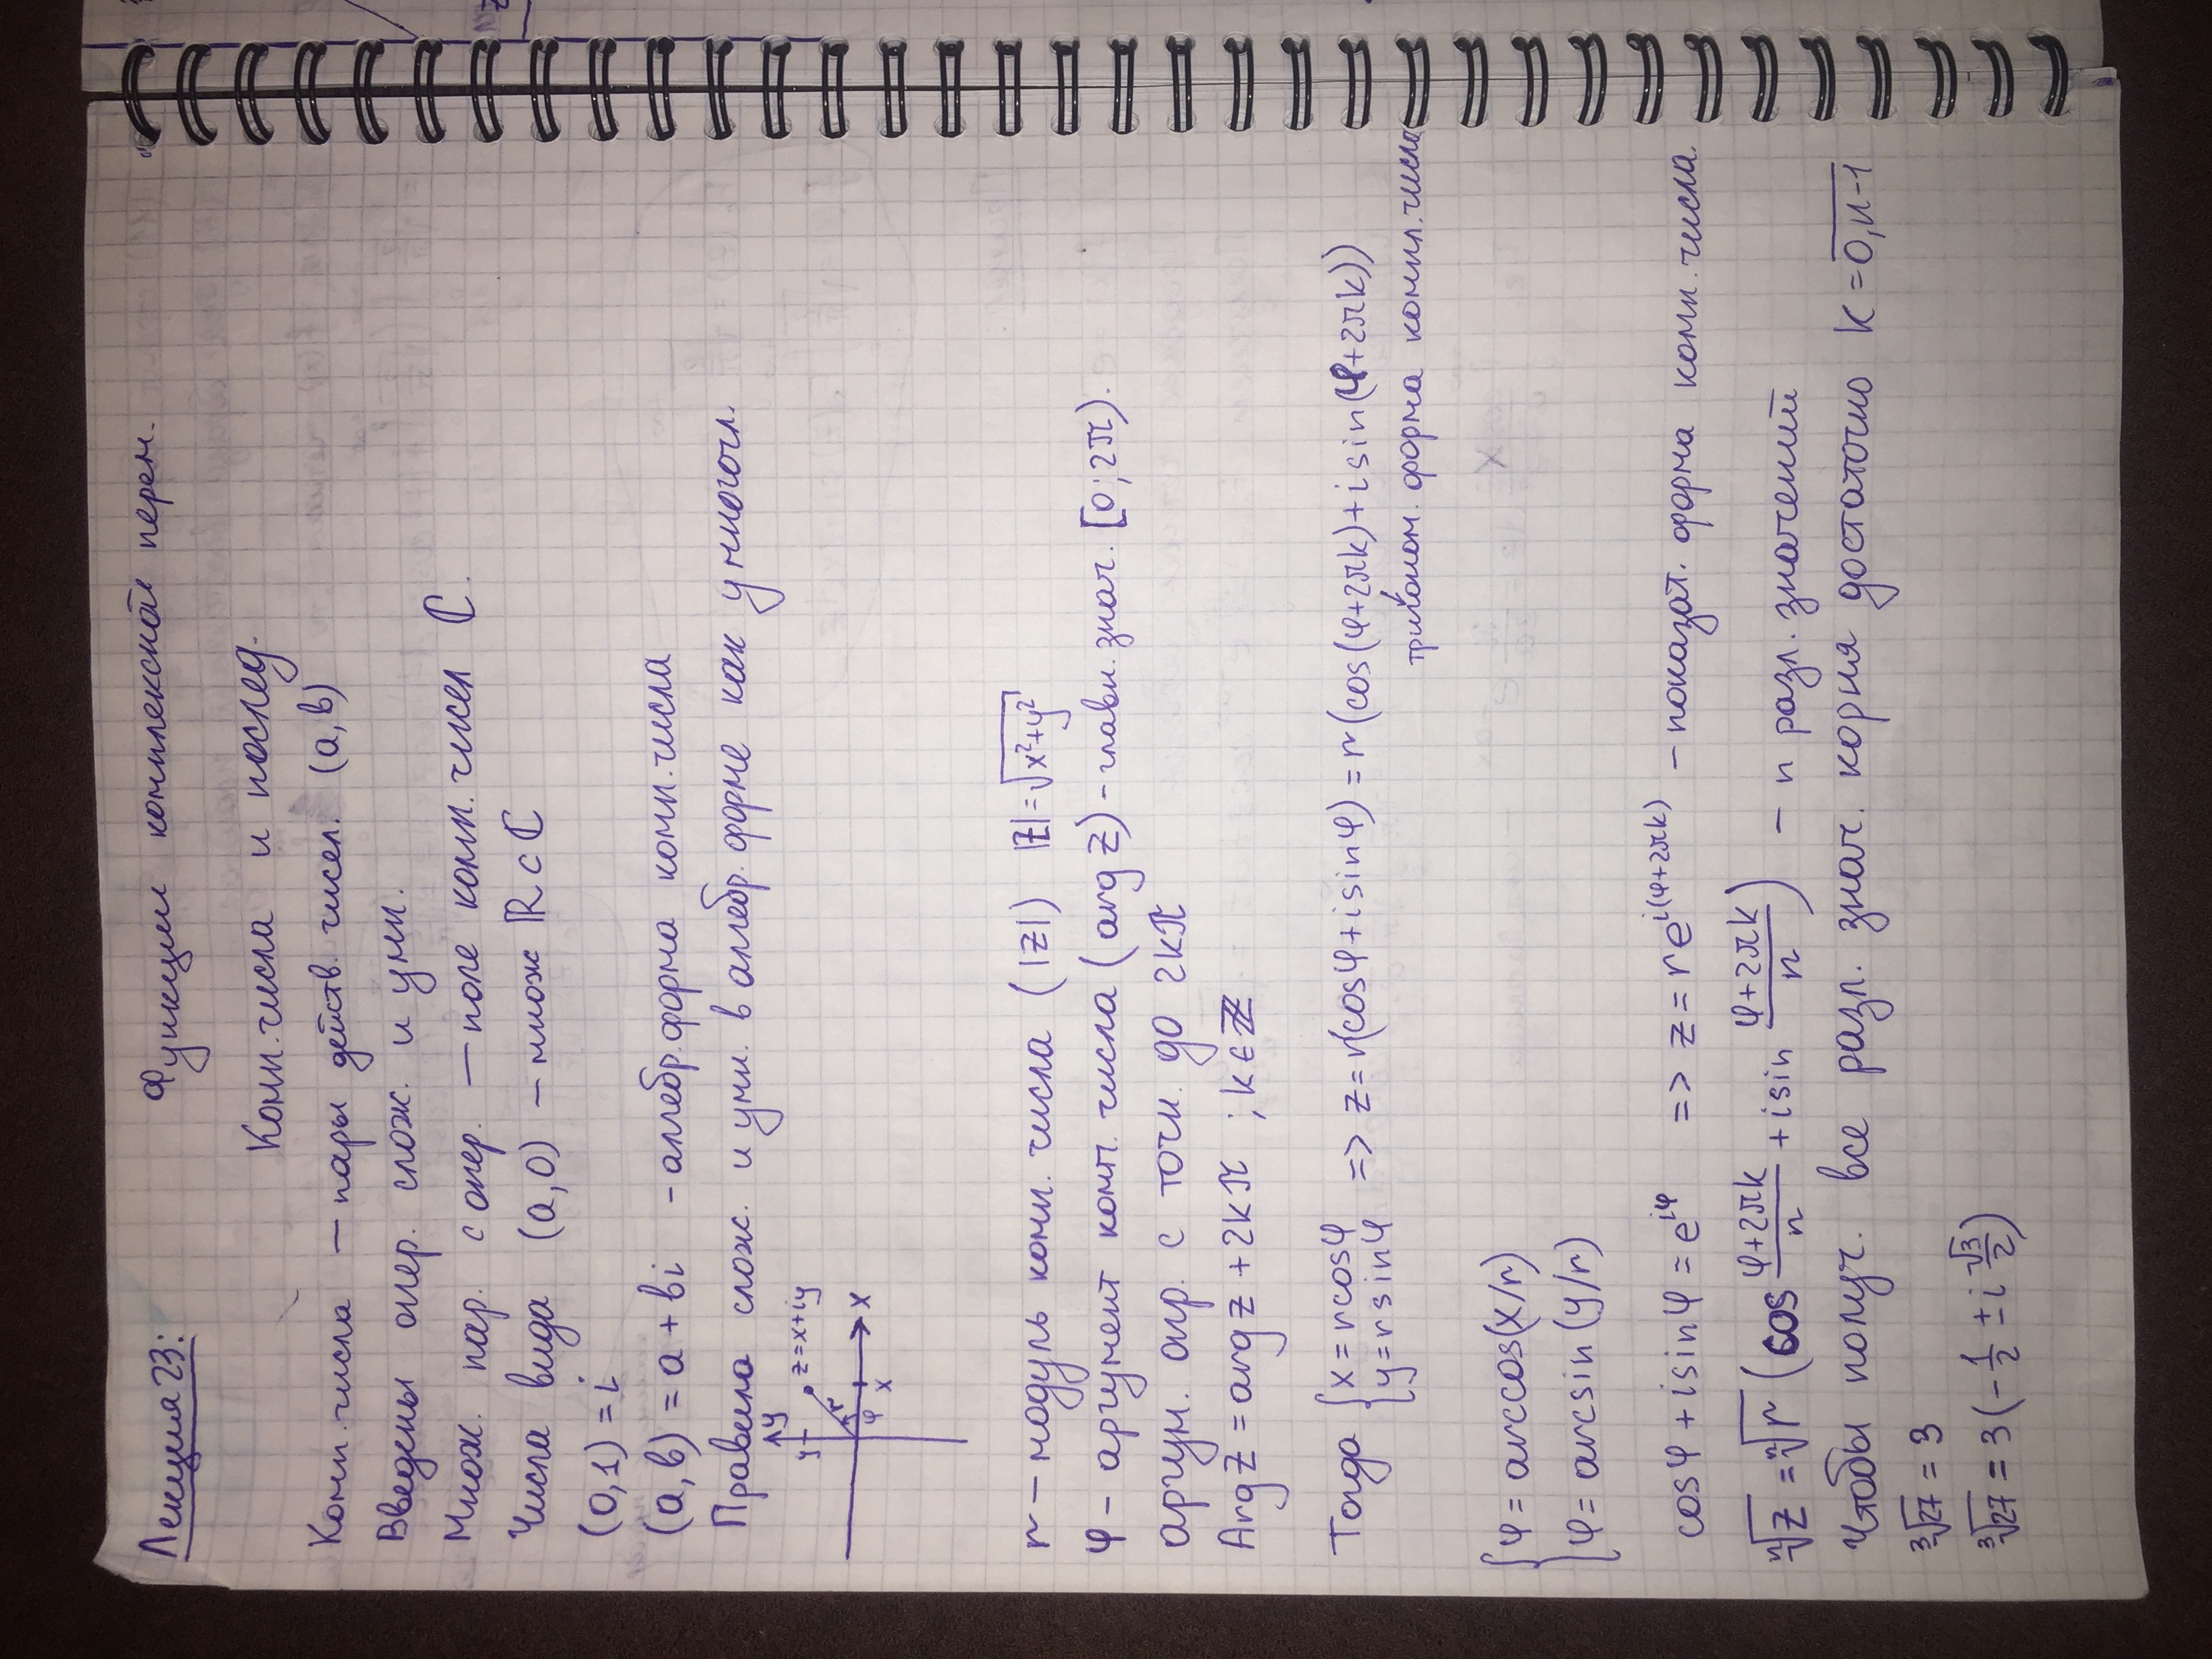 Лекция 23: Функции комплексной перем.
Комп. числа и послед.
Комп. числа — пары действ. чисел. (a, b)
Введены опер. слож. и умн.
Множ. пар. с опер. — поле комп. чисел ℂ.
Числа вида (a, 0) — множ ℝ ⊂ ℂ
(0, 1) = i
(a, b) = a + bi - алгебр. форма комп. числа
Правила слож. и умн. в алгебр. форме как у многочл.
y
y z = x + iy
r
φ x x
r — модуль комп. числа (|z|) |z| = √(x² + y²)
φ - аргумент комп. числа (arg z) - главн. знач. [0; 2π).
аргум. опр. с точн. до 2kπ
Arg z = arg z + 2kπ ; k ∈ ℤ
Тогда { x = r cosφ
y = r sinφ => z = r(cosφ + i sinφ) = r(cos(φ + 2πk) + i sin(φ + 2πk))
тригоном. форма компл. числа
{ φ = arccos(x/r)
φ = arcsin(y/r)
cosφ + i sinφ = e^{iφ} => z = re^{i(φ+2πk)} - показат. форма комп. числа.
ⁿ√z = ⁿ√r (cos (φ+2πk)/n + i sin (φ+2πk)/n) - n разл. значений
Чтобы получ. все разл. знач. корня достаточно k = \overline{0, n-1}
³√27 = 3
³√27 = 3(-1/2 ± i √3/2)